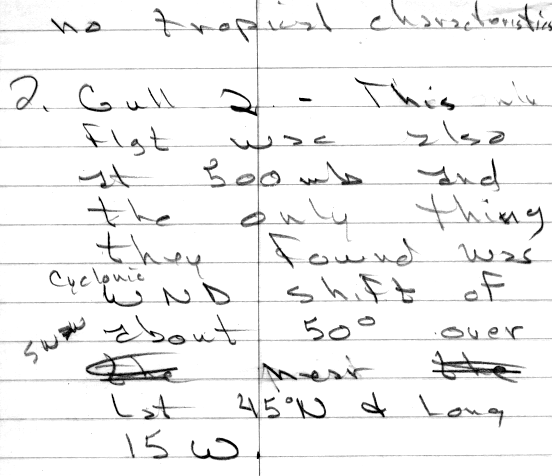 no tropical characteristics
2. Gull 2 - This
Flgt was also
at 500 mb and
the only thing
they found was
cyclonic
WND shift of
about 50° over
the near the
Lat 45°N & Long
15 W.